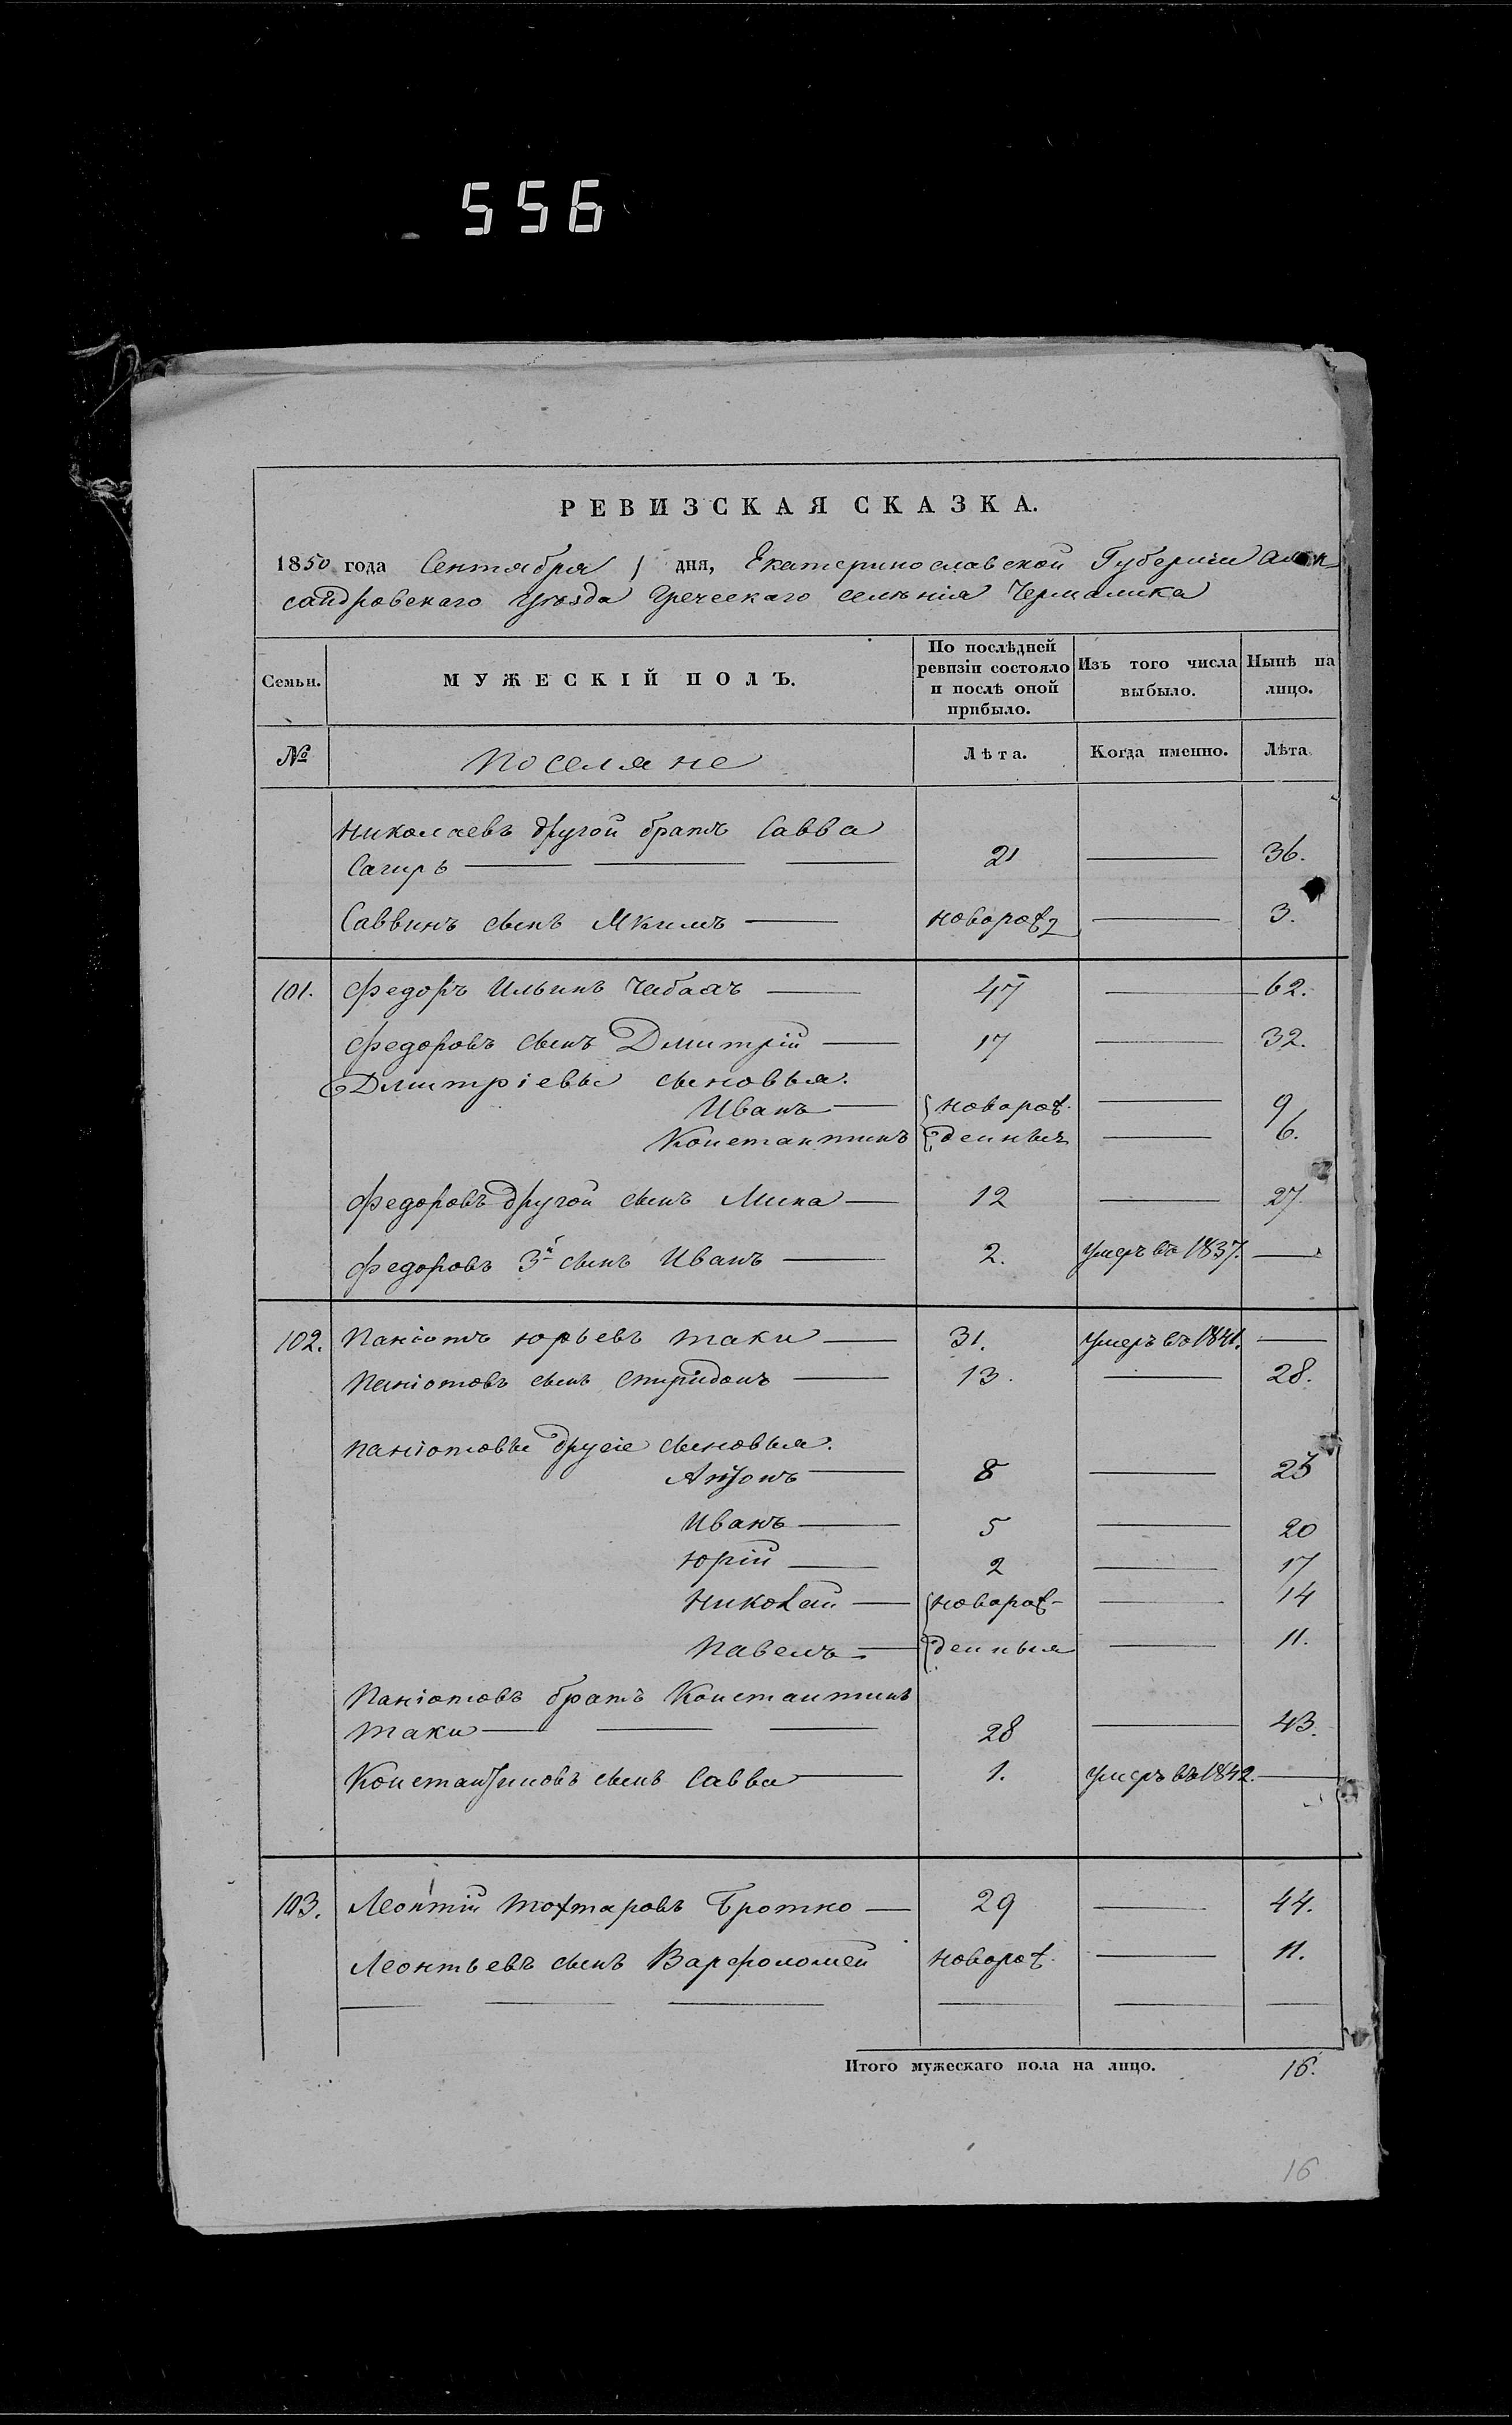 556
РЕВИЗСКАЯ СКАЗКА.
1850 года Сентября 1 дня, Екатеринославской Губернiи Алек
сандровскаго Уѣзда Греческаго селенiя Чермалика
Семьи. МУЖЕСКIЙ ПОЛЪ. По послѣдней ревизiи состояло и послѣ оной прибыло. Изъ того числа выбыло. Нынѣ на лицо.
№ Поселяне Лѣта. Когда именно. Лѣта
Николаевъ другой братъ Савва
Сагиръ 21 36.
Саввинъ сынъ Якимъ новорож 3.
101. Федоръ Ильинъ Чабахъ 47 62.
Федоровъ сынъ Дмитрiй 17 32.
Дмитрiевы сыновья.
Иванъ новорож 9
Константинъ денныя 6.
Федоровъ другой сынъ Мина 12 27.
Федоровъ 3й сынъ Иванъ 2. умеръ въ 1837.
102. Панiотъ Юрьевъ Таки 31. умеръ въ 1841.
Панiотовъ сынъ Спиридонъ 13. 28.
Панiотовы другiе сыновья.
Антонъ 8 23
Иванъ 5 20
Юрiй 2 17
Николай новорож- 14
Павелъ денныя 11.
Панiотовъ братъ Константинъ
Таки 28 43.
Константиновъ сынъ Савва 1. умеръ въ 1842.
103. Леонтiй Тохтаровъ Бротко 29 44.
Леонтьевъ сынъ Варфоломей новорож. 11.
Итого мужескаго пола на лицо. 16.
16